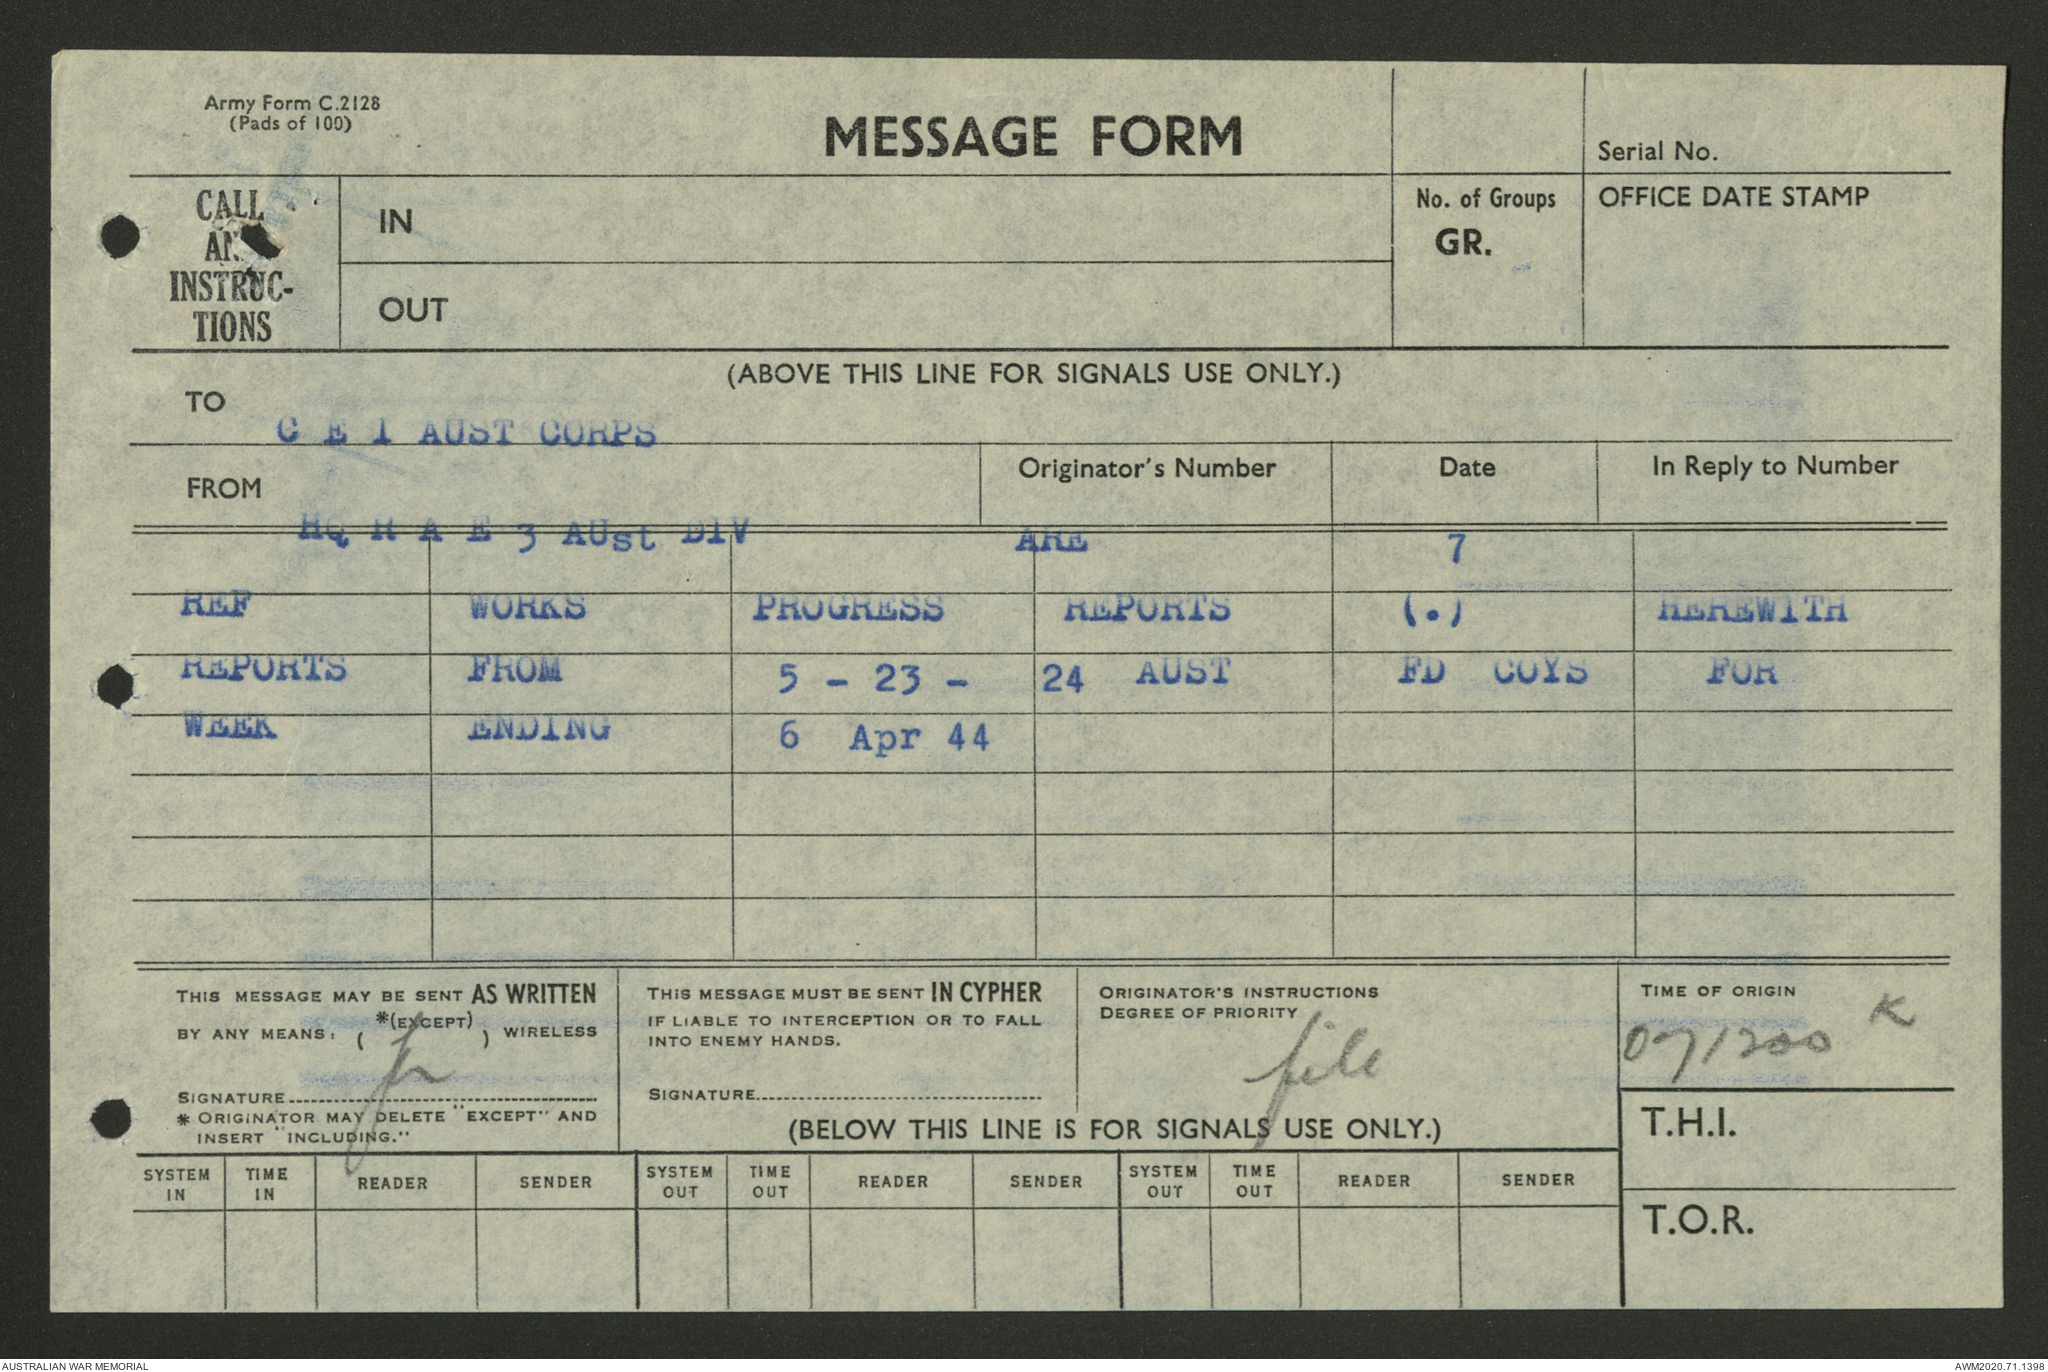 Army Form C.2128
(Pads of 100)
MESSAGE FORM
Serial No.
CALL
AN
INSTRUC-
TIONS
IN
OUT
No. of Groups
GR.
OFFICE DATE STAMP
(ABOVE THIS LINE FOR SIGNALS USE ONLY.)
TO
C E 1 AUST CORPS
FROM
Originator's Number
Date
In Reply to Number
HQ R A E 3 AUst DIV ARE 7
REF WORKS PROGRESS REPORTS (.) HEREWITH
REPORTS FROM 5 - 23 - 24 AUST FD COYS FOR
WEEK ENDING 6 Apr 44
THIS MESSAGE MAY BE SENT AS WRITTEN
BY ANY MEANS: ( *(EXCEPT) ) WIRELESS
SIGNATURE
* ORIGINATOR MAY DELETE "EXCEPT" AND
INSERT "INCLUDING."
THIS MESSAGE MUST BE SENT IN CYPHER
IF LIABLE TO INTERCEPTION OR TO FALL
INTO ENEMY HANDS.
SIGNATURE
ORIGINATOR'S INSTRUCTIONS
DEGREE OF PRIORITY
file
TIME OF ORIGIN
071200 K
(BELOW THIS LINE IS FOR SIGNALS USE ONLY.)
T.H.I.
T.O.R.
SYSTEM IN TIME IN READER SENDER SYSTEM OUT TIME OUT READER SENDER SYSTEM OUT TIME OUT READER SENDER
AUSTRALIAN WAR MEMORIAL
AWM2020.71.1398